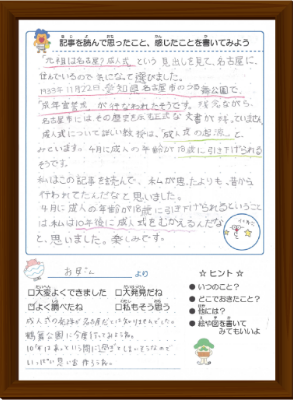 記事を読んで思ったこと、感じたことを書いてみよう
「元祖は名古屋?成人式」という見出しを見て、名古屋に
住んでいるので気になって選びました。
1933年11月22日、愛知県名古屋市のつる舞公園で、
「成年宣誓式」が行なわれたそうです。残念ながら、
名古屋市には、その歴史を示す正式な文書が残っていません。
成人式について詳しい教授は、「成人式の起源」と
みています。4月に成人の年齢が18歳に引き下げられる
そうです。
私はこの記事を読んで、私が思ったよりも、昔から
行われてたんだなと思いました。
4月に成人の年齢が18歳に引き下げられるということ
は、私は10年後に成人式をむかえるんだな
と、思いました。楽しみです。
お母さん より
□大変よくできました □大発見だね
□よく調べたね □私もそう思う
成人式の元祖が名古屋だとは知りませんでした。
鶴舞公園に今度行ってみようね。
10年はあっという間に過ぎてしまいそうなので
いっぱい思い出作ろうね。
☆ ヒント ☆
●いつのこと?
●どこでおきたこと?
●他には?
●絵や図を書いて
みてもいいよ